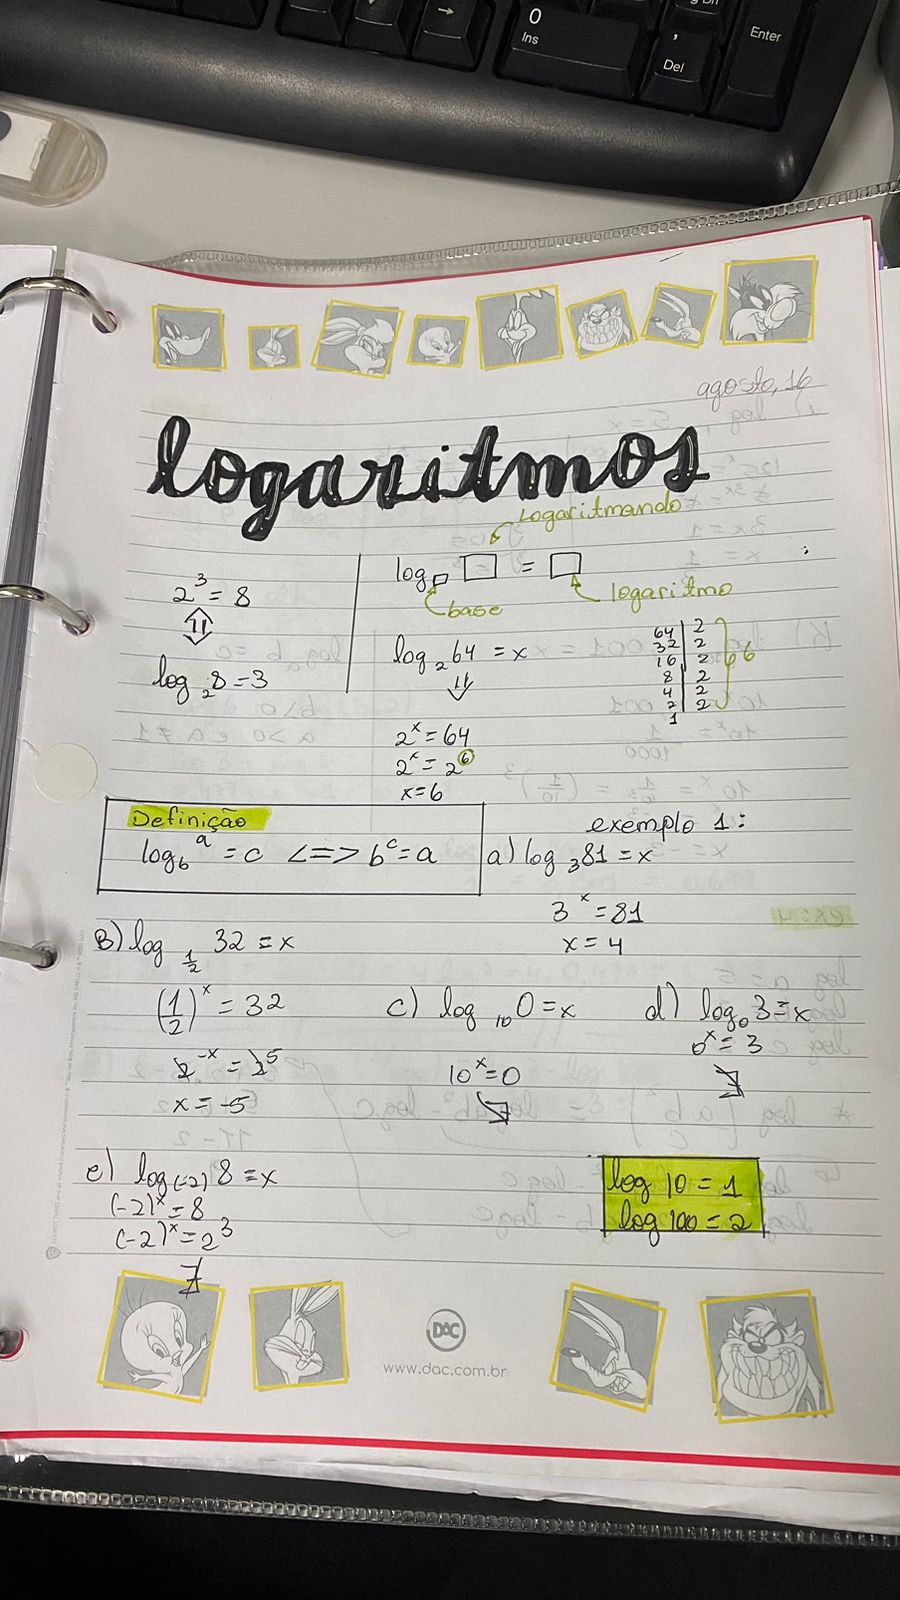 0
Ins
,
Del
Enter
agosto, 16
logaritmos
Logaritmando
log □ □ = □
base
logaritmo
2³ = 8
⇕
log₂8 = 3
log₂64 = x
⇓
2ˣ = 64
2ˣ = 2⁶
x = 6
64 | 2
32 | 2
16 | 2
8 | 2
4 | 2
2 | 2
1
6
Definição
log_b a = c <=> bᶜ = a
exemplo 1:
a) log₃81 = x
3ˣ = 81
x = 4
B) log_{1/2} 32 = x
(1/2)ˣ = 32
2⁻ˣ = 2⁵
x = -5
c) log₁₀0 = x
10ˣ = 0
∄
d) log₀3 = x
0ˣ = 3
∄
e) log₍₋₂₎8 = x
(-2)ˣ = 8
(-2)ˣ = 2³
∄
log 10 = 1
log 100 = 2
DAC
www.dac.com.br